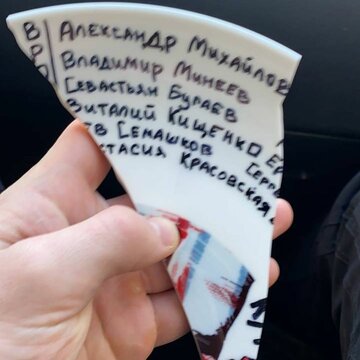 В АЛЕКСАНДР МИХАЙЛОВ
Р ВЛАДИМИР МИНЕЕВ
О СЕВАСТЬЯН БУГАЕВ
ВИТАЛИЙ КИЩЕНКО ЕР
ЕВ СЕМАШКОВ СЕРГ
СТАСИЯ КРАСОВСКАЯ